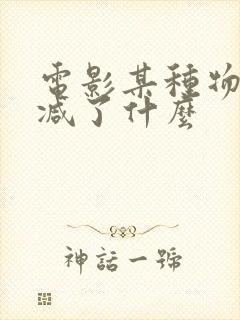 電影某種物
减了什麼
神話一號